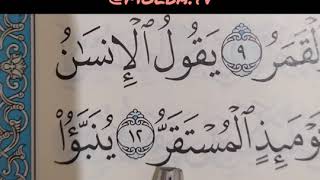 @MOLDA.TV
لْقَمَرُ ٩ يَقُولُ ٱلْإِنسَٰنُ
يَوْمَئِذٍ ٱلْمُسْتَقَرُّ ١٢ يُنَبَّؤُا۟